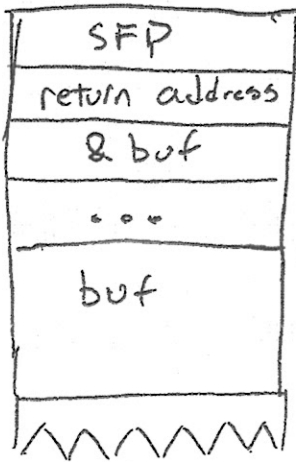 SFP
return address
& buf
...
buf